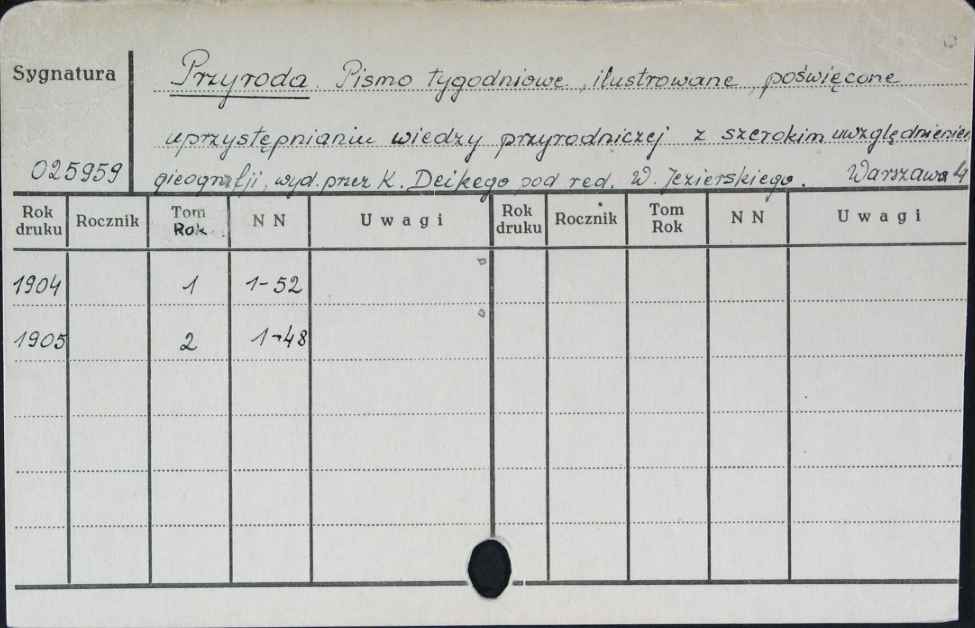 Sygnatura
025959
Przyroda. Pismo tygodniowe, ilustrowane, poświęcone
uprzystępnianiu wiedzy przyrodniczej z szerokim uwzględnieniem
gieografji, wyd. przez K. Deikego pod red. W. Jezierskiego. Warszawa 4
Rok druku Rocznik Tom Rok N N Uwagi Rok druku Rocznik Tom Rok N N Uwagi
1904 1 1-52
1905 2 1-48